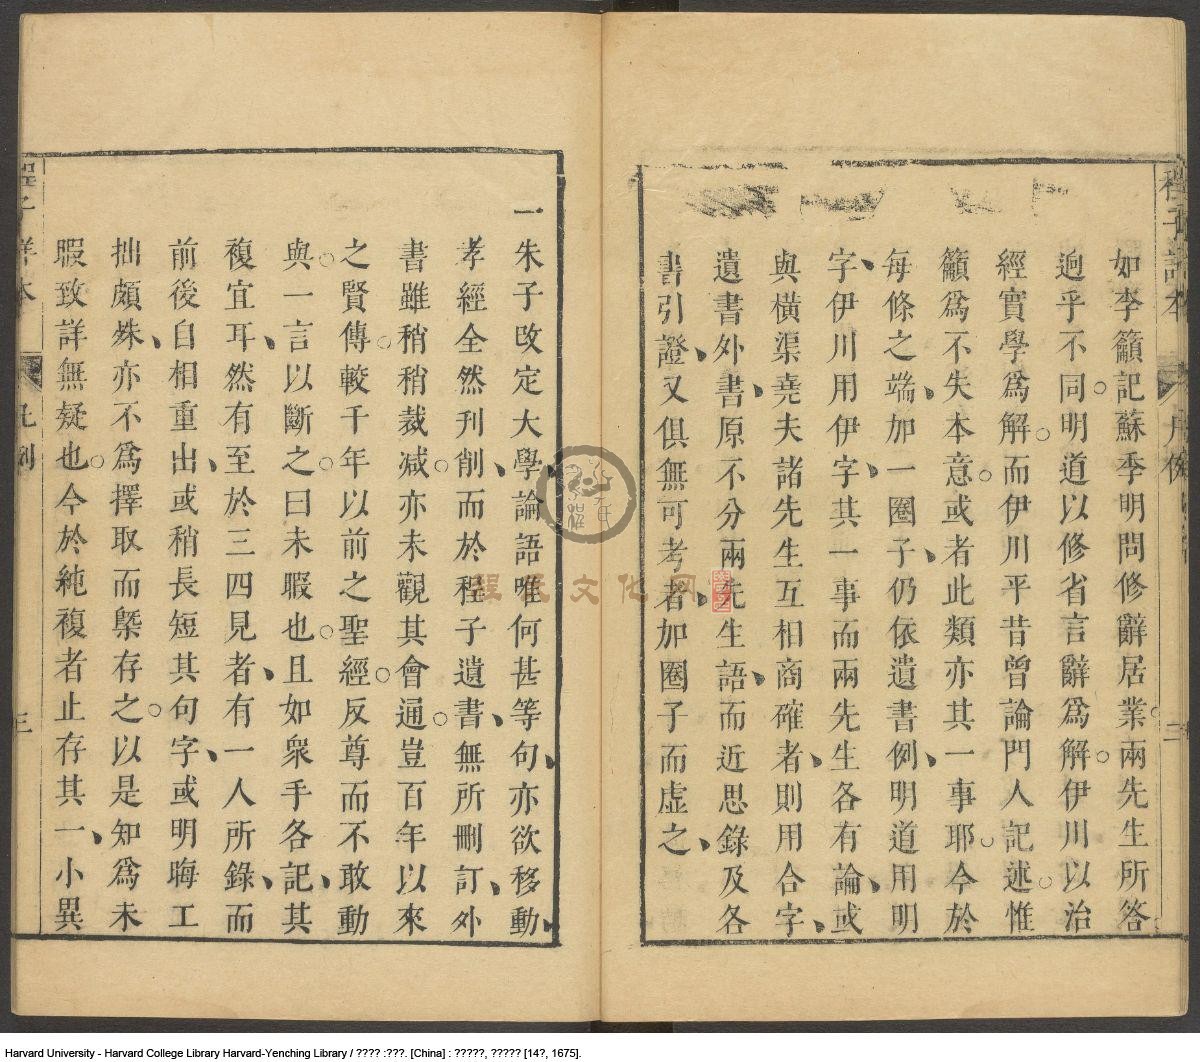 如李籲記蘇季明問修辭居業兩先生所答
迥乎不同明道以修省言辭爲解伊川以治
經實學爲解而伊川平昔曾論門人記述惟
籲爲不失本意或者此類亦其一事耶今於
每條之端加一圈子仍依遺書例明道用明
字伊川用伊字其一事而兩先生各有論或
與橫渠堯夫諸先生互相商確者則用合字
遺書外書原不分兩先生語而近思錄及各
書引證又俱無可考者加圈子而虛之
一朱子改定大學論語唯何甚等句亦欲移動
孝經全然刊削而於程子遺書無所刪訂外
書雖稍稍裁減亦未觀其會通豈百年以來
之賢傳較千年以前之聖經反尊而不敢動
與一言以斷之曰未暇也且如衆手各記其
複宜耳然有至於三四見者有一人所錄而
前後自相重出或稍長短其句字或明晦工
拙頗殊亦不爲擇取而槩存之以是知爲未
暇致詳無疑也今於純複者止存其一小異
三
程氏文化网
Harvard University - Harvard College Library Harvard-Yenching Library / ???? :???. [China] : ?????, ????? [14?, 1675].